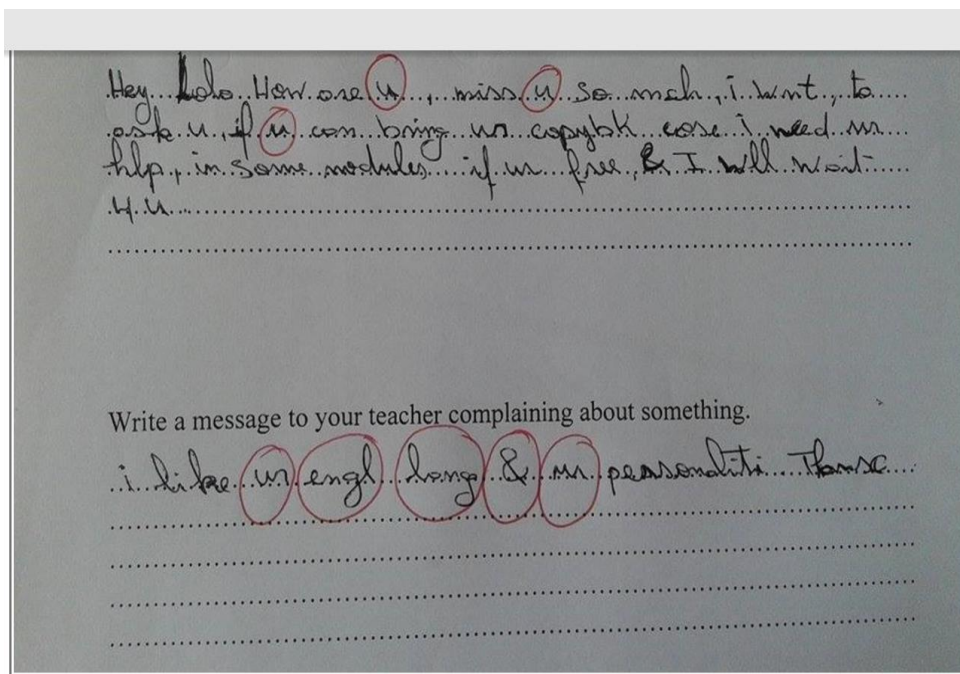 Hey Lolo How are u, miss u so mch, i wnt, to
ask u, if u can bring ur copybk cose i need ur
hlp, in some modules if ur free, & I will wait
4 u
Write a message to your teacher complaining about something.
i like ur engl lang & ur personaliti